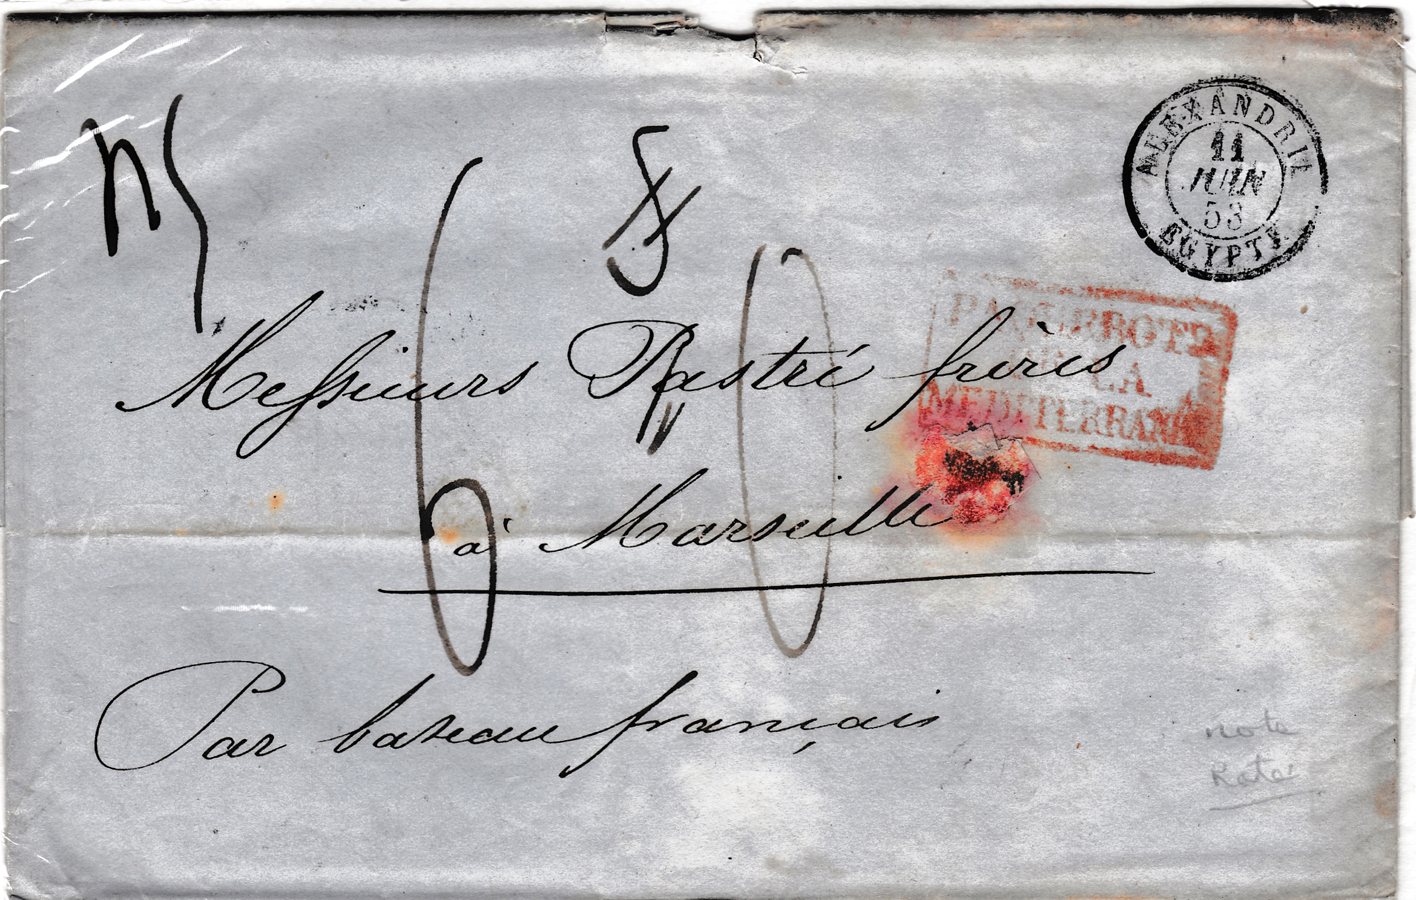 ALEXANDRIE
11
JUIN
53
EGYPTE
PAQUEBOTS
DE LA
MEDITERRANÉE
Messieurs Pastré frères
à Marseille
Par bateau français
note
Rate